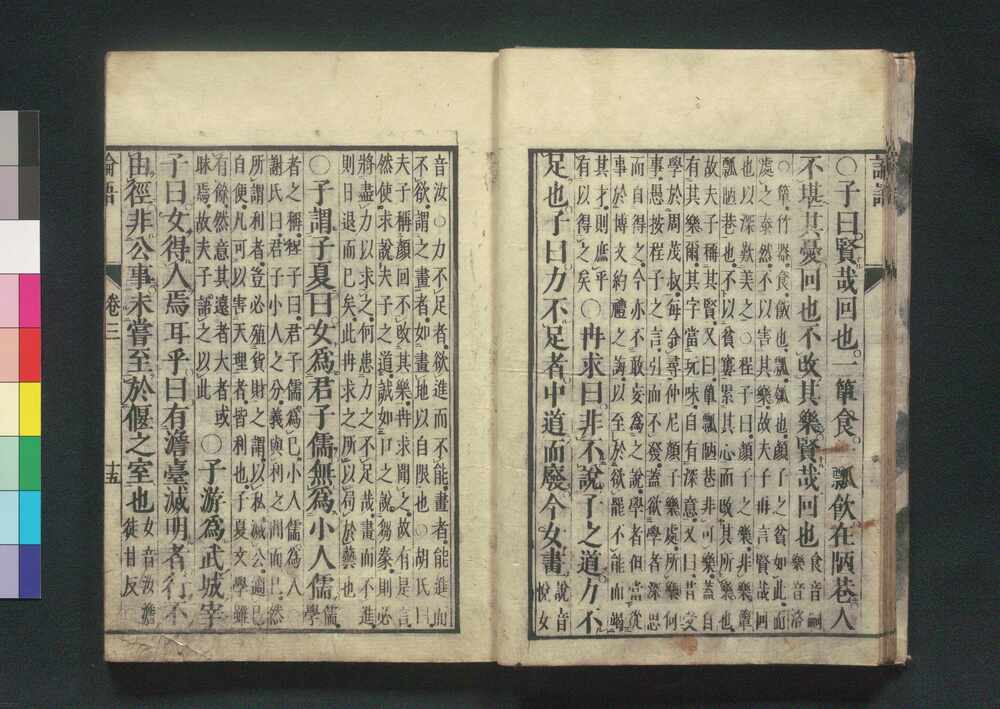 論語
○子曰賢哉回也一簞食一瓢飲在陋巷人
不堪其憂回也不改其樂賢哉回也
食音嗣
樂音洛
○簞竹器食飯也瓢瓠也顏子之貧如此而
處之泰然不以害其樂故夫子再言賢哉回
也以深歎美之○程子曰顏子之樂非樂簞
瓢陋巷也不以貧窶累其心而改其所樂也
故夫子稱其賢又曰簞瓢陋巷非可樂蓋自
有其樂爾其字當玩味自有深意又曰昔受
學於周茂叔每令尋仲尼顏子樂處所樂何
事愚按程子之言引而不發蓋欲學者深思
而自得之今亦不敢妄為之說學者但當從
事於博文約禮之誨以至於欲罷不能而竭
其才則庶乎
有以得之矣
○冉求曰非不說子之道力不
足也子曰力不足者中道而廢今女畫
說音
悅女
音汝○力不足者欲進而不能畫者能進而
不欲謂之畫者如畫地以自限也○胡氏曰
夫子稱顏回不改其樂冉求聞之故有是言
然使求說夫子之道誠如口之說芻豢則必
將盡力以求之何患力之不足哉畫而不進
則日退而已矣此冉求之所以局於藝也
○子謂子夏曰女為君子儒無為小人儒
儒
學
者之稱程子曰君子儒為己小人儒為人
謝氏曰君子小人之分義與利之間而已然
所謂利者豈必殖貨財之謂以私滅公適己
自便凡可以害天理者皆利也子夏文學雖
有餘然意其遠者大者或
昧焉故夫子語之以此
○子游為武城宰
子曰女得人焉耳乎曰有澹臺滅明者行不
由徑非公事未嘗至於偃之室也
女音汝澹
徒甘反
論語
卷三
十五